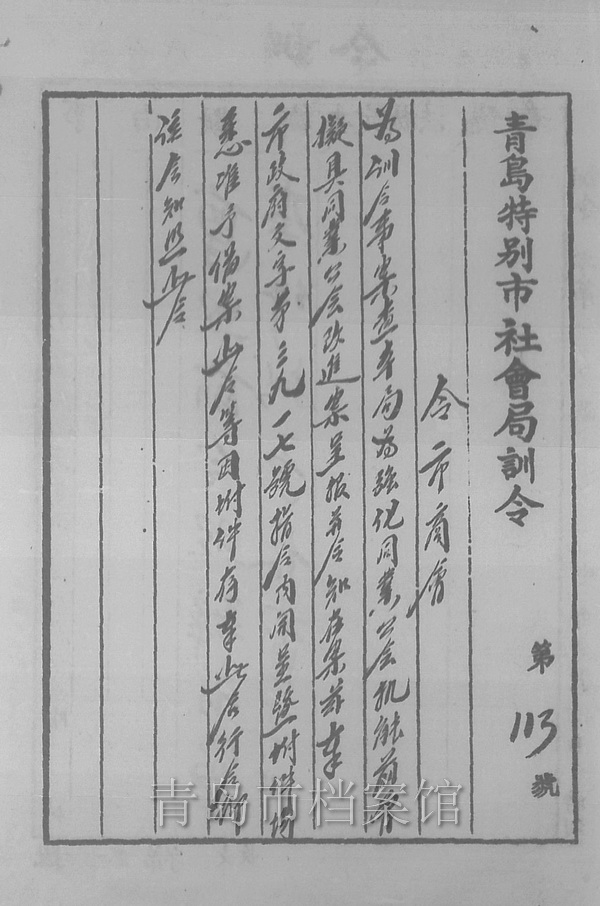 青島特別市社會局訓令
第113號
令市商會
為訓令事案查本局為強化同業公會机能前曾
擬具同業公會改進案呈报並令知在案茲奉
市政府文字第三九一七號指令內開呈暨附件均
悉准予備案此令等因附件存奉此合行令仰
該會知照此令
青岛市档案馆